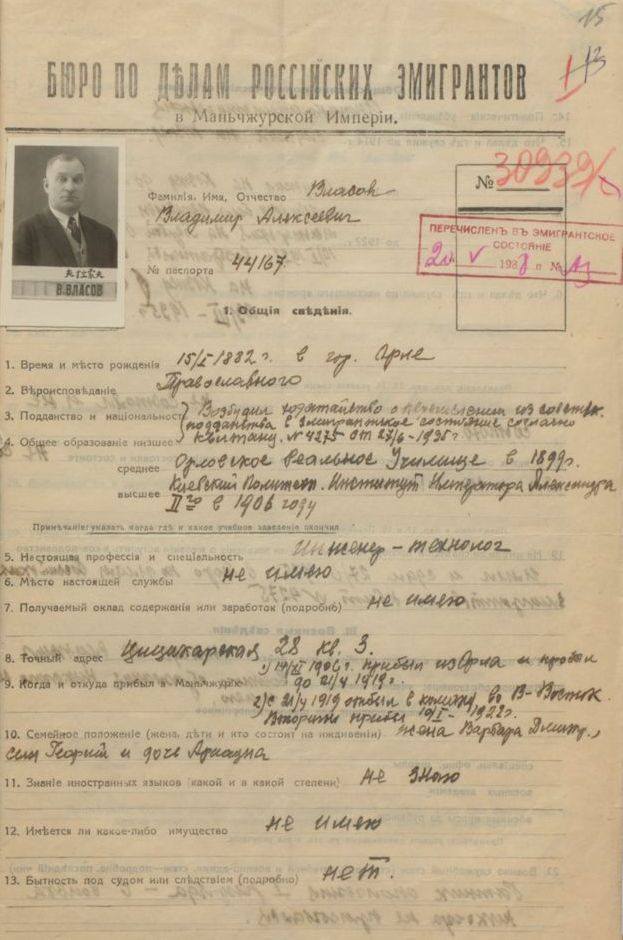 15
13
БЮРО ПО ДѢЛАМ РОССІЙСКИХ ЭМИГРАНТОВ
в Маньчжурской Имперіи.
Фамилія, Имя, Отчество Власов
Владимир Алексеевич
№ паспорта 44167
В.ВЛАСОВ
№ 30939
ПЕРЕЧИСЛЕНЪ ВЪ ЭМИГРАНТСКОЕ
СОСТОЯНІЕ
V 193 г №
1. Общія свѣдѣнія.
1. Время и мѣсто рожденія 15/I 1882 г. в гор. Орле
2. Вѣроисповѣданіе Православного
3. Подданство и національность Возбудил ходатайство о перечислении из советск.
подданства в эмигрантское состояние согласно
4. Общее образованіе низшее квитанц. № 4275 от 27/6 - 1935 г.
среднее Орловское Реальное Училище в 1899 г.
высшее Киевский Политехн. Институт Императора Александра
II го в 1906 году
Примѣчаніе: указать когда гдѣ и какое учебное заведеніе окончил
5. Настоящая профессія и спеціальность Инженер-технолог
6. Мѣсто настоящей службы не имею
7. Получаемый оклад содержанія или заработок (подробно) не имею
8. Точный адрес Цицикарская 28 кв. 3.
1) 14/XI 1906 г. прибыл из Орла и пробыл
9. Когда и откуда прибыл в Маньчжурію до 21/V 1919 г.
2) с 21/V 1919 отбыл в команд. во В-Восток.
Вторично прибыл 19/I - 1922 г.
10. Семейное положеніе (жена, дѣти и кто состоит на иждивеніи) жена Варвара Дмитр.,
сын Георгий и дочь Ариадна
11. Знаніе иностранных языков (какой и в какой степени) не знаю
12. Имѣется ли какое-либо имущество не имею
13. Бытность под судом или слѣдствіем (подробно) нет.